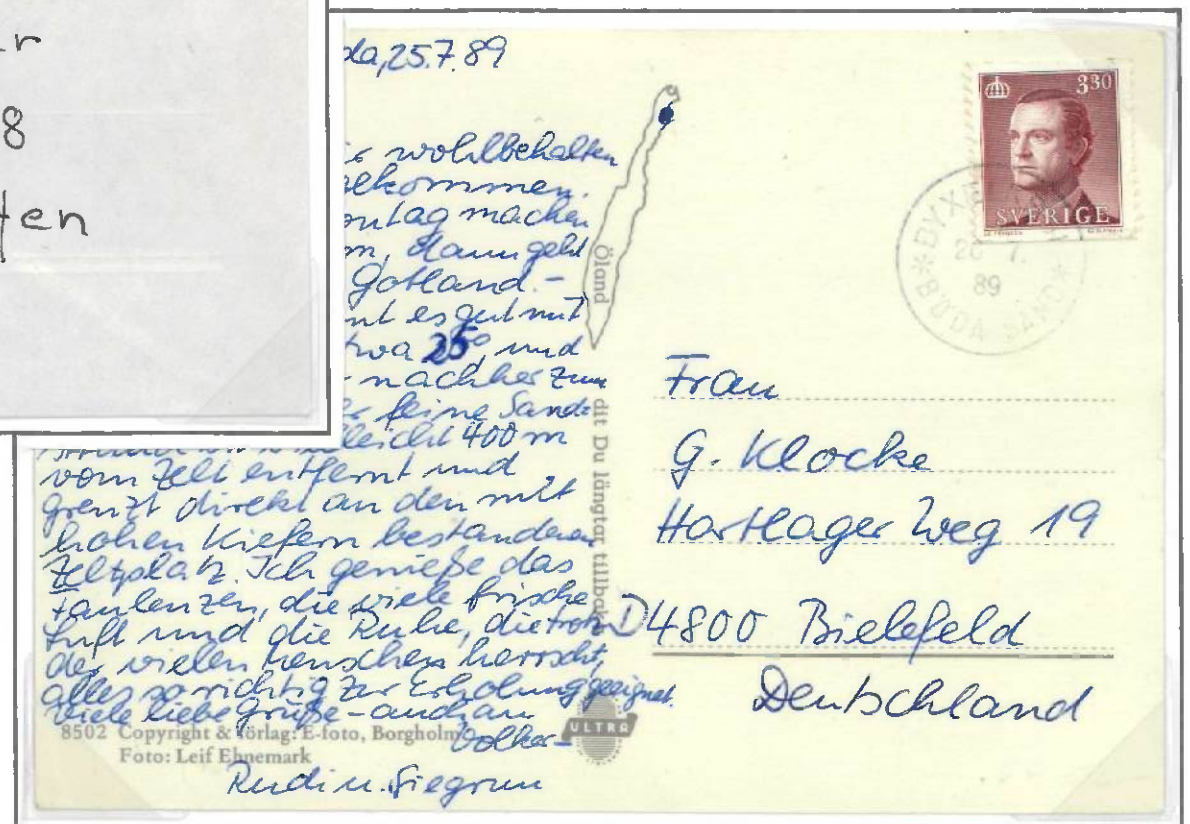 r
8
ten
da, 25.7.89
wohlbehalten
gekommen.
ntag machen
dann geht
Gotland. –
nt es gut mit
wa 25°, und
– nachher zum
r feine Sand=
leicht 400 m
vom Zelt entfernt und
grenzt direkt an den mit
hohen Kiefern bestandenen
Zeltplatz. Ich genieße das
Faulenzen, die viele frische
Luft und die Ruhe, die trotz
der vielen Menschen herrscht,
alles so richtig zur Erholung geeignet.
Viele liebe Grüße – auch an
Volker –
Rudi u. Siegrun
8502 Copyright & Förlag: E-foto, Borgholm
Foto: Leif Ehnemark
ULTRA
Öland
dit Du längtar tillbaka
330
SVERIGE
BYX
7.
89
BÖDA SAND
Frau
G. Klocke
Hartlager Weg 19
D 4800 Bielefeld
Deutschland